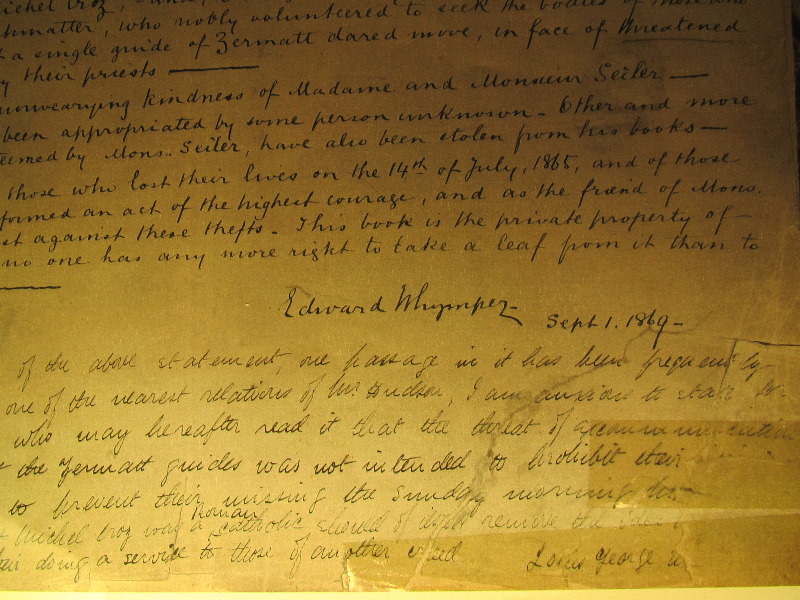 ichel Croz,
hmatter, who nobly volunteered to seek the bodies of those who
t a single guide of Zermatt dared move, in face of threatened
y their priests
unwearying kindness of Madame and Monsieur Seiler —
been appropriated by some person unknown - Other and more
eemed by Mons. Seiler, have also been stolen from his books —
those who lost their lives on the 14th of July, 1865, and of those
formed an act of the highest courage, and as the friend of Mons.
st against these thefts - This book is the private property of -
no one has any more right to take a leaf from it than to
Edward Whymper
Sept 1. 1869 -
of the above statement, one passage in it has been frequently
one of the nearest relations of Mr Hudson, I am anxious to state
who may hereafter read it that the threat of excommunication
the Zermatt guides was not intended to prohibit their
to prevent their missing the Sunday morning
Michel Croz was a Roman Catholic should of itself remove the
eir doing a service to those of another creed Louis George